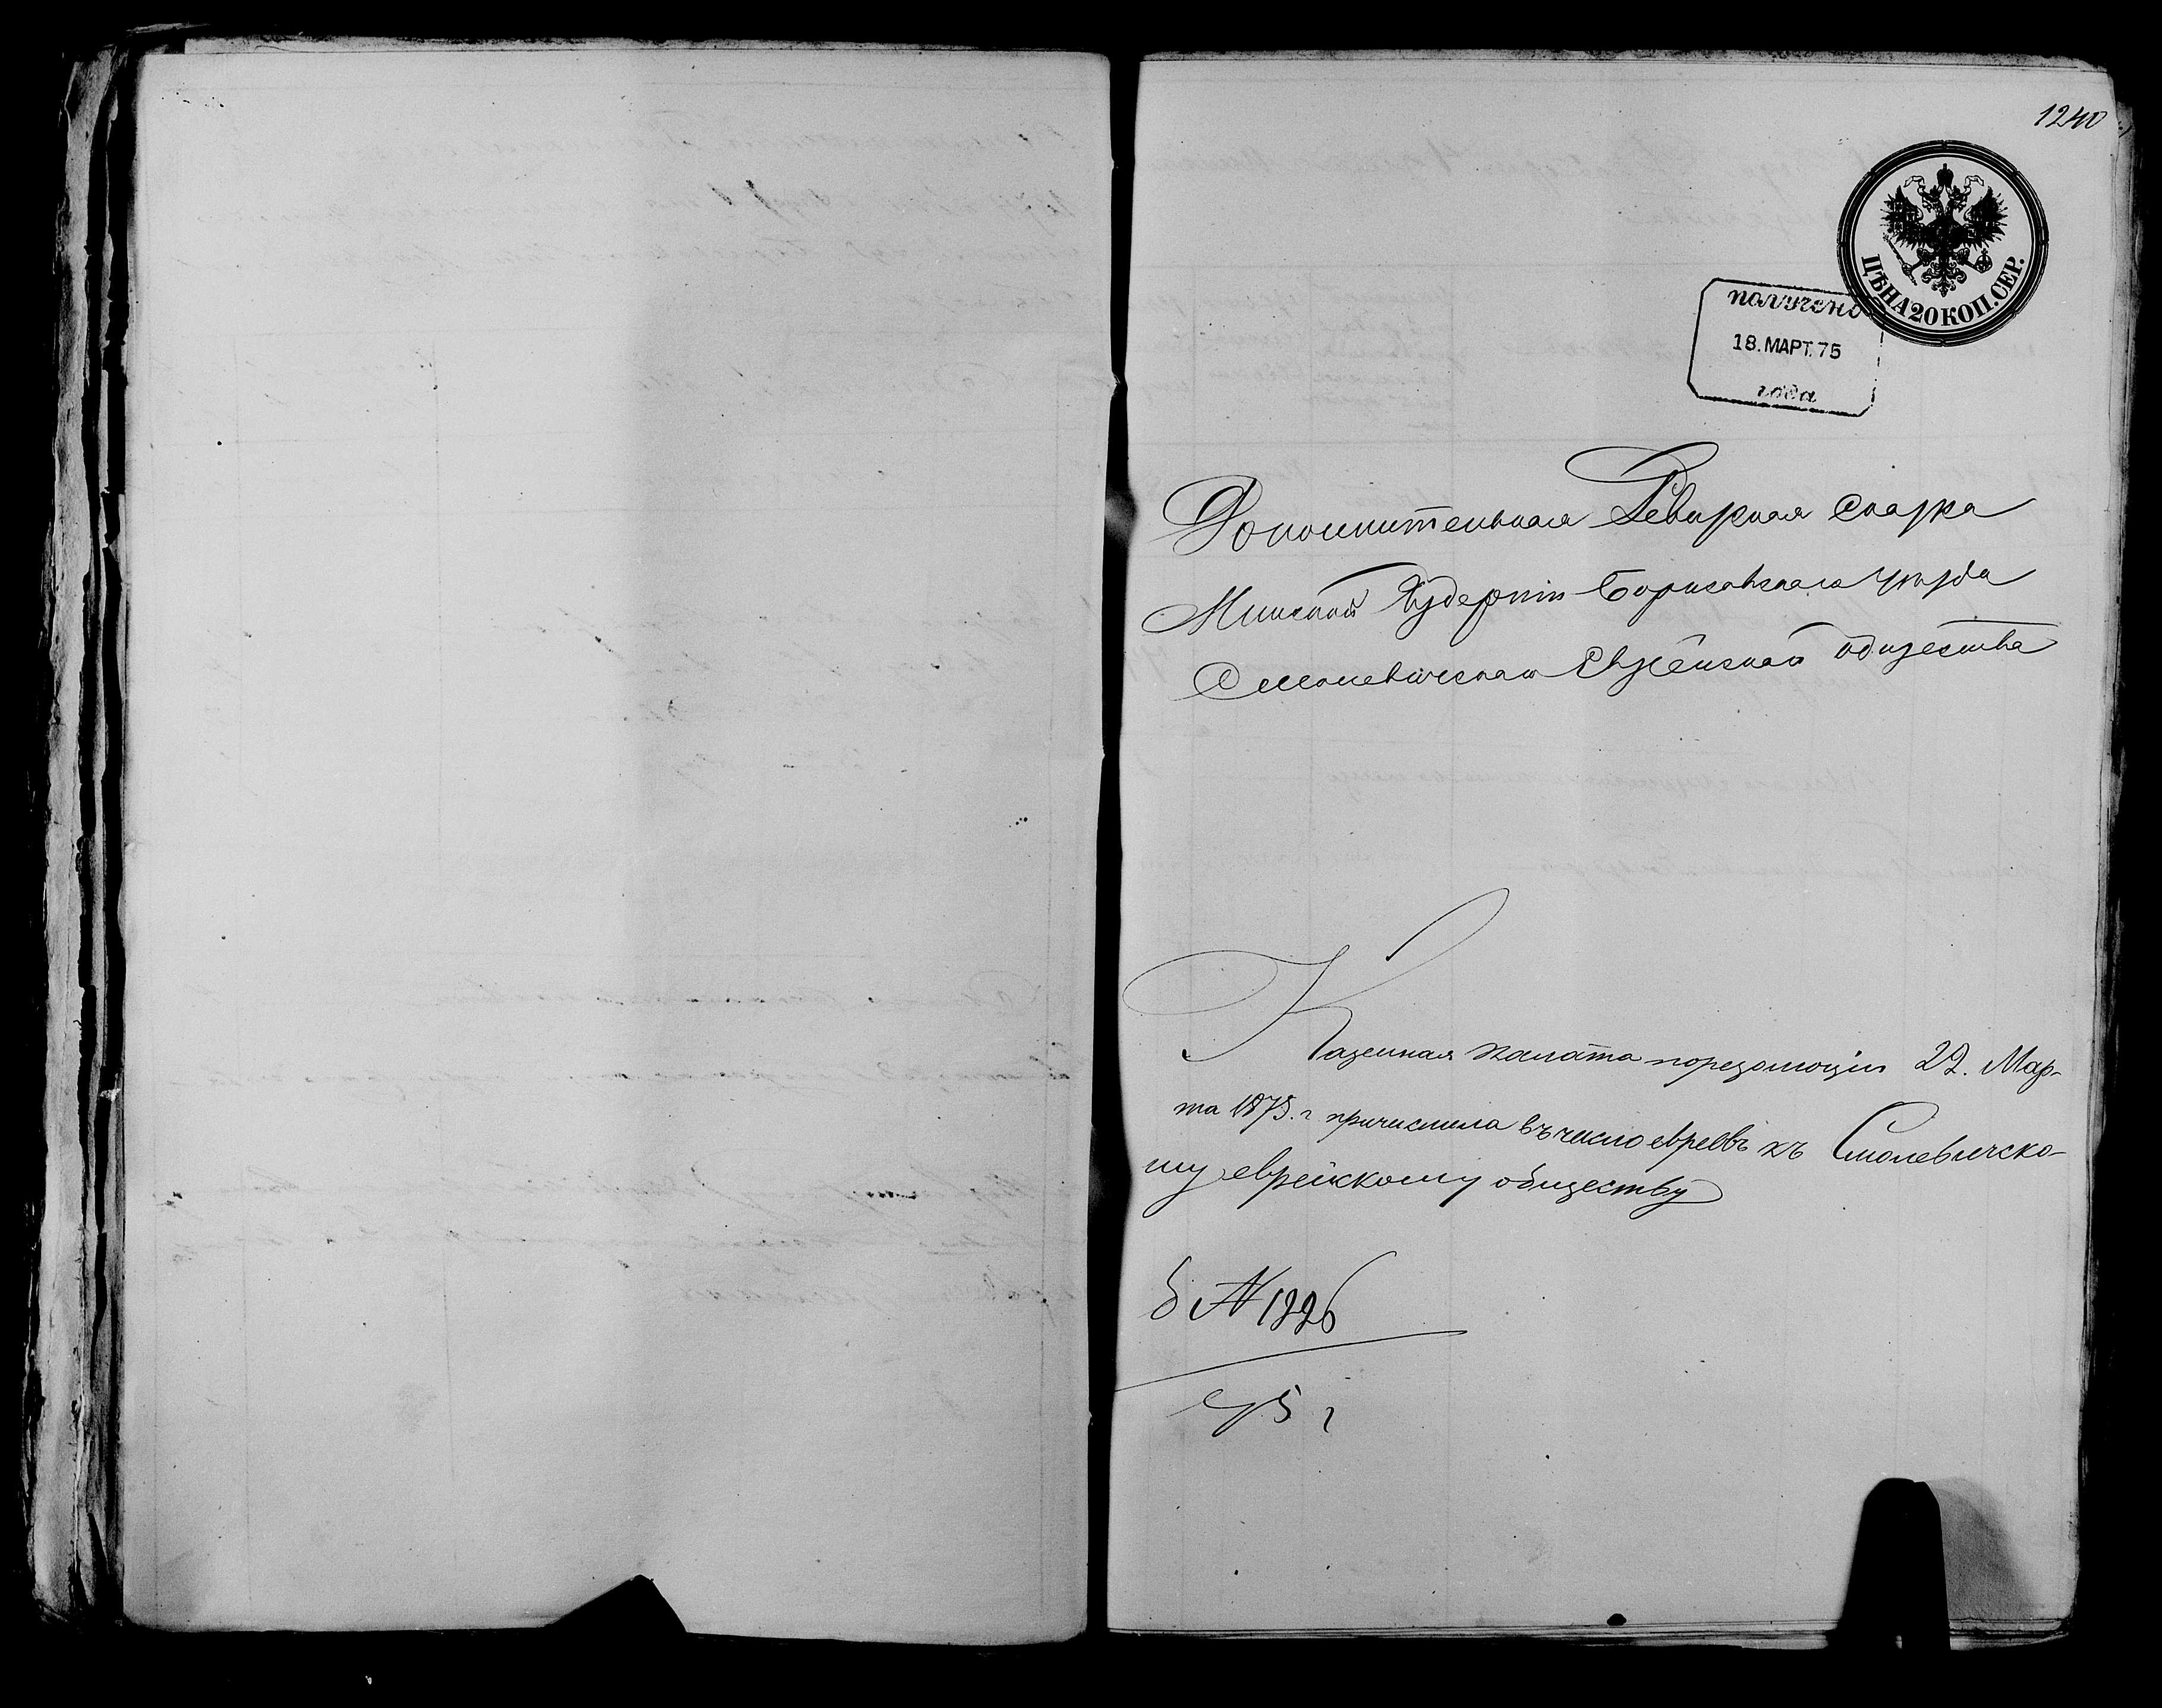 1240
ЦѢНА 20 КОП. СЕР.
получено
18. МАРТ. 75
года
Дополнительная Ревизская Сказка
Минской Губерніи Борисовскаго уѣзда
Смолевичскаго Еврейскаго общества
Казенная Палата по резолюціи 22. Мар-
та 1875. г причислила въ число евреевъ къ Смолевичско-
му еврейскому обществу
№ 1226
75 г